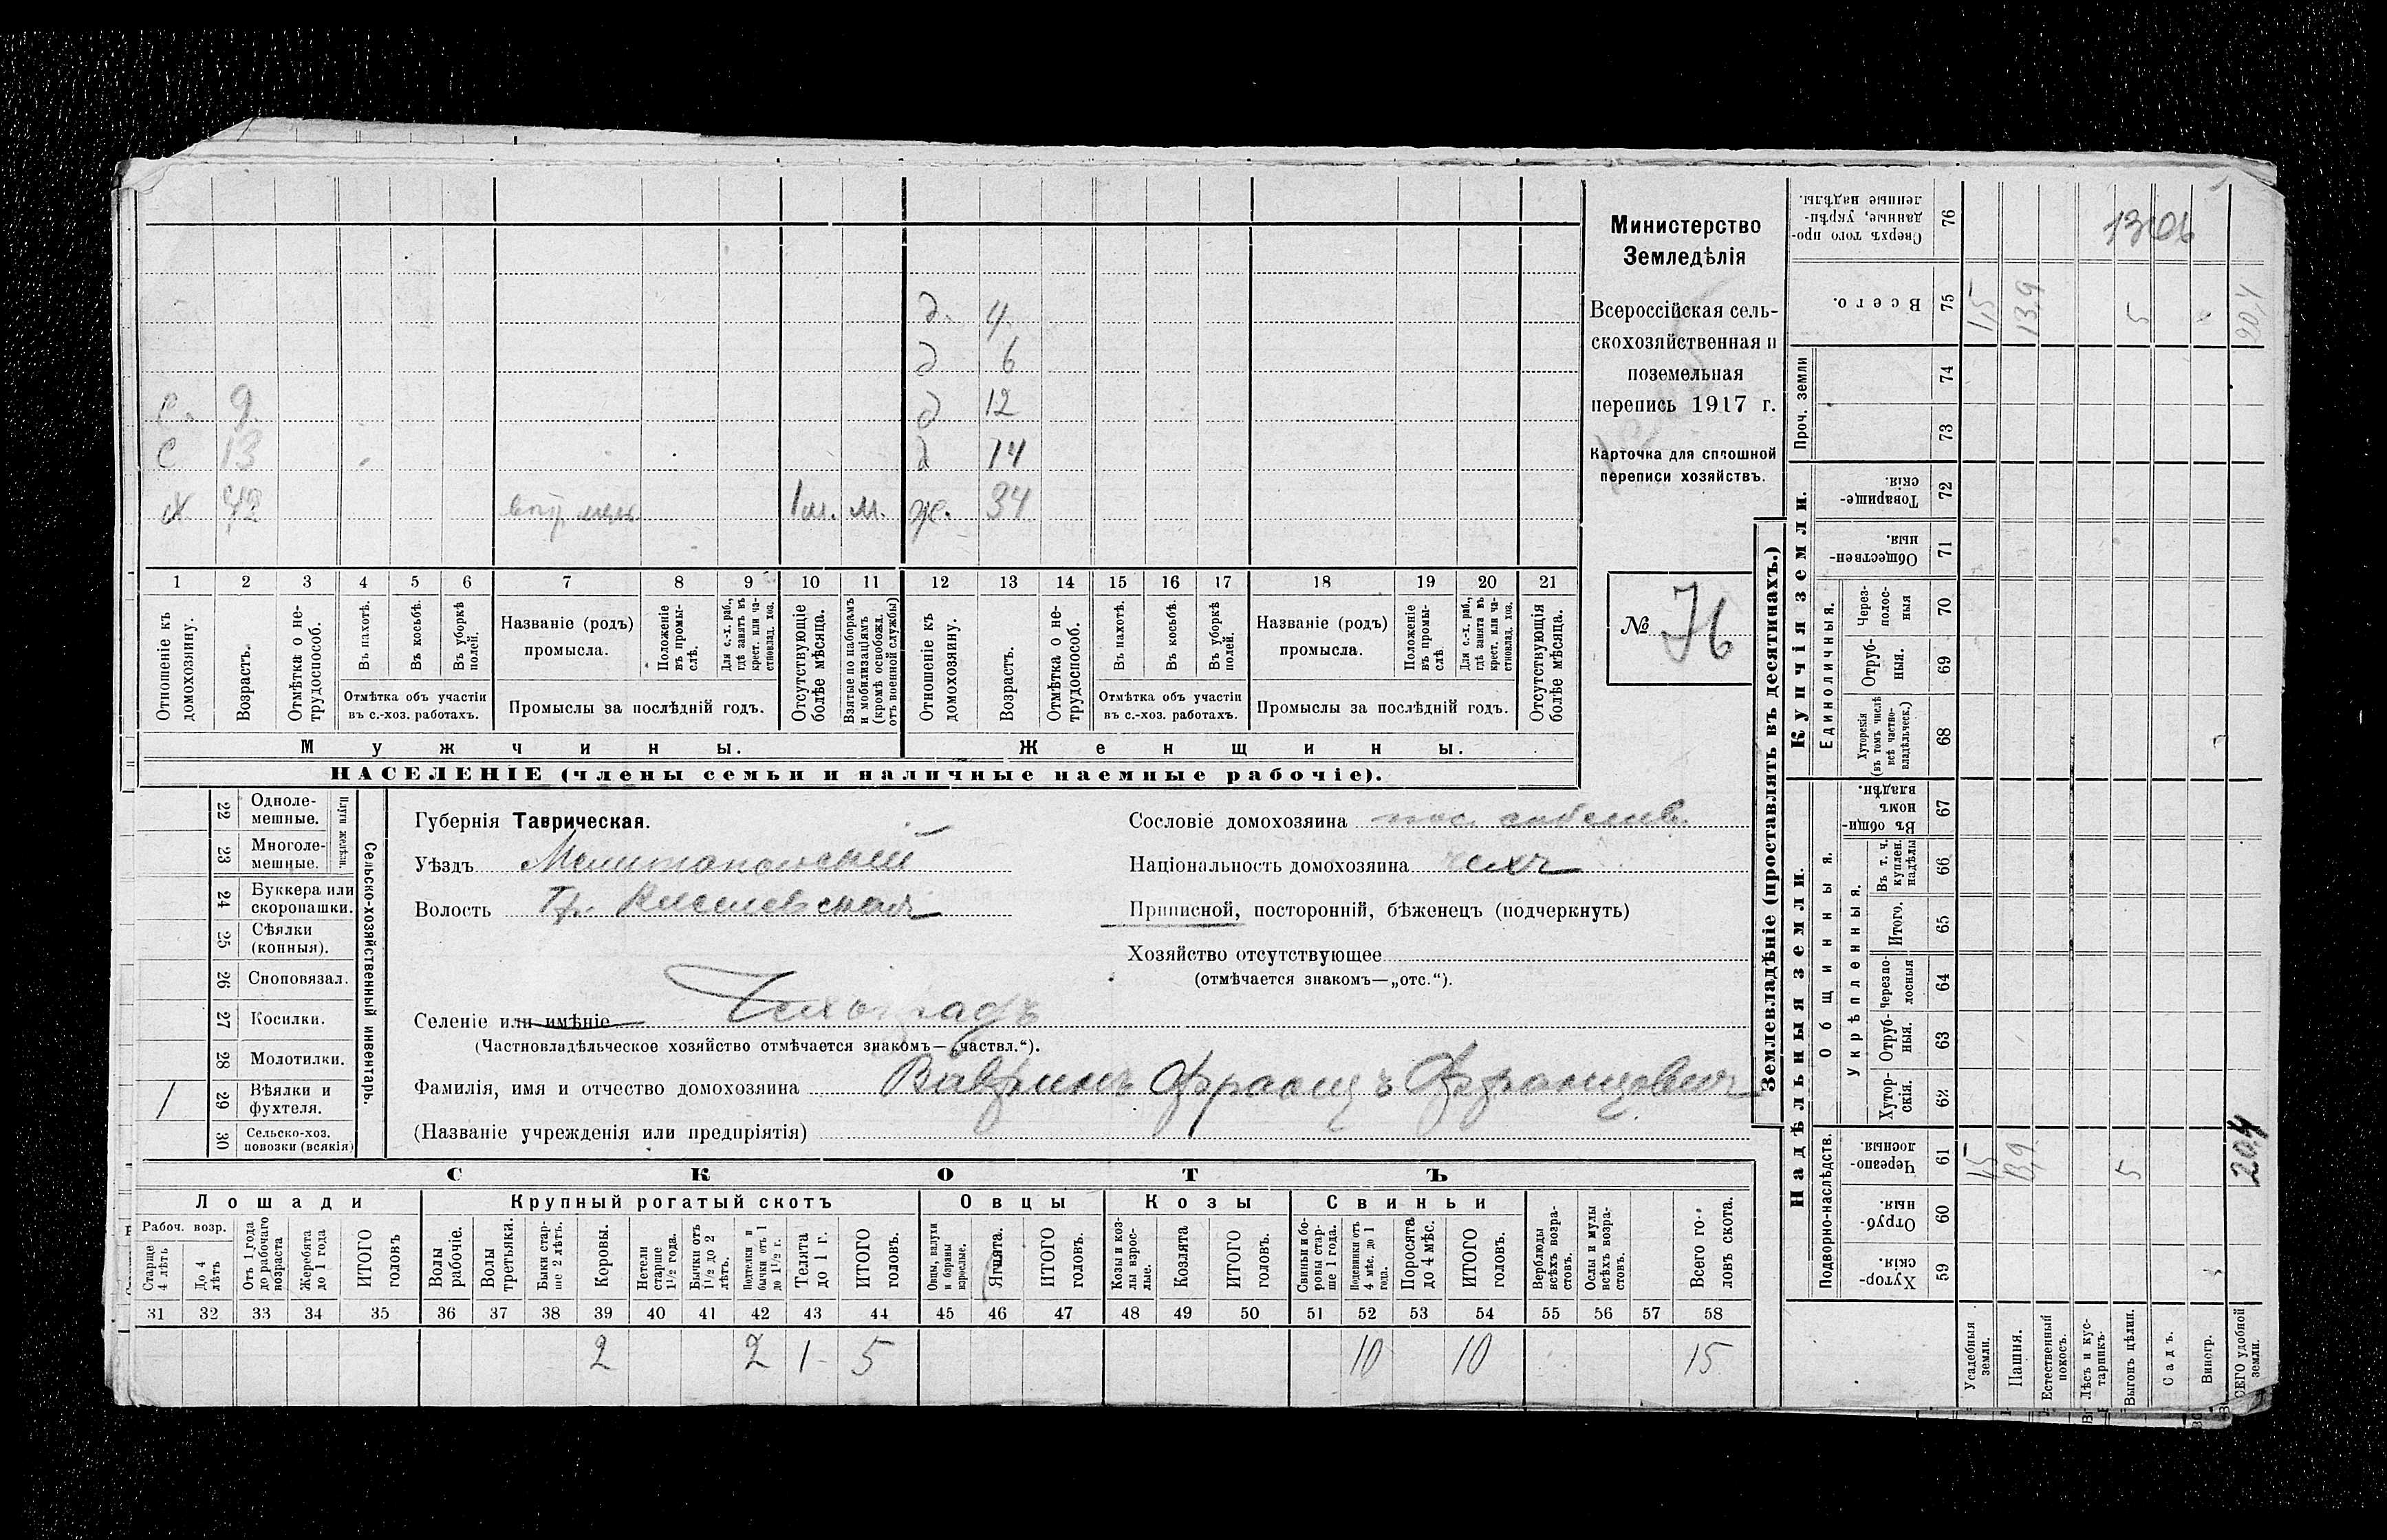 д. 4.
д 6
с. 9. д 12
с 13 д 14
х 42 1м. м. ж. 34
1 2 3 4 5 6 7 8 9 10 11 12 13 14 15 16 17 18 19 20 21
Отношеніе къ домохозяину.
Возрастъ.
Отмѣтка о не-трудоспособ.
Въ пахотѣ.
Въ косьбѣ.
Въ уборкѣ полей.
Отмѣтка объ участіи
въ с.-хоз. работахъ.
Названіе (родъ)
промысла.
Положеніе въ промы-слѣ.
Для с.-х. раб., гдѣ занятъ въ крест. или ча-стновлад. хоз.
Промыслы за послѣдній годъ.
Отсутствующіе болѣе мѣсяца.
Взятые по наборамъ и мобилизаціямъ (кромѣ освобожд. отъ военной службы)
Отношеніе къ домохозяину.
Возрастъ.
Отмѣтка о не-трудоспособ.
Въ пахотѣ.
Въ косьбѣ.
Въ уборкѣ полей.
Отмѣтка объ участіи
въ с.-хоз. работахъ.
Названіе (родъ)
промысла.
Положеніе въ промы-слѣ
Для с.-х. раб., гдѣ занята въ крест. или ча-стновлад. хоз.
Промыслы за послѣдній годъ.
Отсутствующія болѣе мѣсяца.
Мужчины. Женщины.
НАСЕЛЕНІЕ (члены семьи и наличные наемные рабочіе).
Министерство
Земледѣлія
Всероссійская сель-
скохозяйственная и
поземельная
перепись 1917 г.
Карточка для сплошной
переписи хозяйствъ.
№ 76
22 Одноле-мешные.
23 Многоле-мешные.
24 Буккера или скоропашки.
25 Сѣялки (конныя).
26 Сноповязал.
27 Косилки.
28 Молотилки.
1 29 Вѣялки и фухтеля.
30 Сельско-хоз. повозки (всякія)
Плуги желѣзн.
Сельско-хозяйственный инвентарь.
Губернія Таврическая.
Уѣздъ Мелитопольскій
Волость
Селеніе или имѣніе Чехоградъ
(Частновладѣльческое хозяйство отмѣчается знакомъ—„частвл.“).
Фамилія, имя и отчество домохозяина Вавринъ Францъ Францовичъ
(Названіе учрежденія или предпріятія)
Сословіе домохозяина пос. собствен.
Національность домохозяина чехъ
Приписной, посторонній, бѣженецъ (подчеркнуть)
Хозяйство отсутствующее
(отмѣчается знакомъ—„отс.“).
СКОТЪ
Лошади Крупный рогатый скотъ Овцы Козы Свиньи
Рабоч. возр.
Старше 4 лѣтъ
До 4 лѣтъ
Отъ 1 года до рабочаго возраста
Жеребята до 1 года
ИТОГО головъ
Волы рабочіе.
Волы третьяки.
Быки стар-ше 2 лѣтъ.
Коровы.
Нетели старше 1½ года.
Бычки отъ 1½ до 2 лѣтъ.
Подтелки и бычки отъ 1 до 1½ г.
Телята до 1 г.
ИТОГО головъ.
Овцы, валухи и бараны взрослые.
Ягнята.
ИТОГО головъ.
Козы и коз-лы взрос-лые.
Козлята
ИТОГО головъ.
Свиньи и бо-ровы стар-ше 1 года.
Подсвинки отъ 4 мѣс. до 1 года.
Поросята до 4 мѣс.
ИТОГО головъ.
Верблюды всѣхъ возра-стовъ.
Ослы и мулы всѣхъ возра-стовъ.
Всего го-ловъ скота.
31 32 33 34 35 36 37 38 39 40 41 42 43 44 45 46 47 48 49 50 51 52 53 54 55 56 57 58
2 2 1 5 10 10 15
Землевладѣніе (проставлять въ десятинахъ.)
Купчія земли.
Надѣльныя земли.
Сверхъ того про-данные, укрѣп-ленные надѣлы. 76 1306
Всего. 75 1,5 13,9 5 20,4
Проч. земли 74
73
Товарище-скія. 72
Обществен-ныя. 71
Единоличныя.
Через-полос-ныя 70
Отруб-ныя. 69
Хуторскія (въ томъ числѣ всѣ частно-владѣльческ.) 68
Общинныя.
Въ общи-номъ владѣн. 67
Укрѣпленныя.
Въ т. ч. куплен. надѣлы 66
Итого. 65
Черезпо-лосныя 64
Отруб-ныя. 63
Хутор-скія. 62
Подворно-наслѣдств.
Черезпо-лосныя. 61 1,5 13,9 5 20,4
Отруб-ныя. 60
Хутор-скія. 59
Усадебныя земли.
Пашня.
Естественный покосъ.
Лѣсъ и кус-тарникъ.
Выгонъ цѣлин.
Садъ.
Виногр.
ВСЕГО удобной земли.